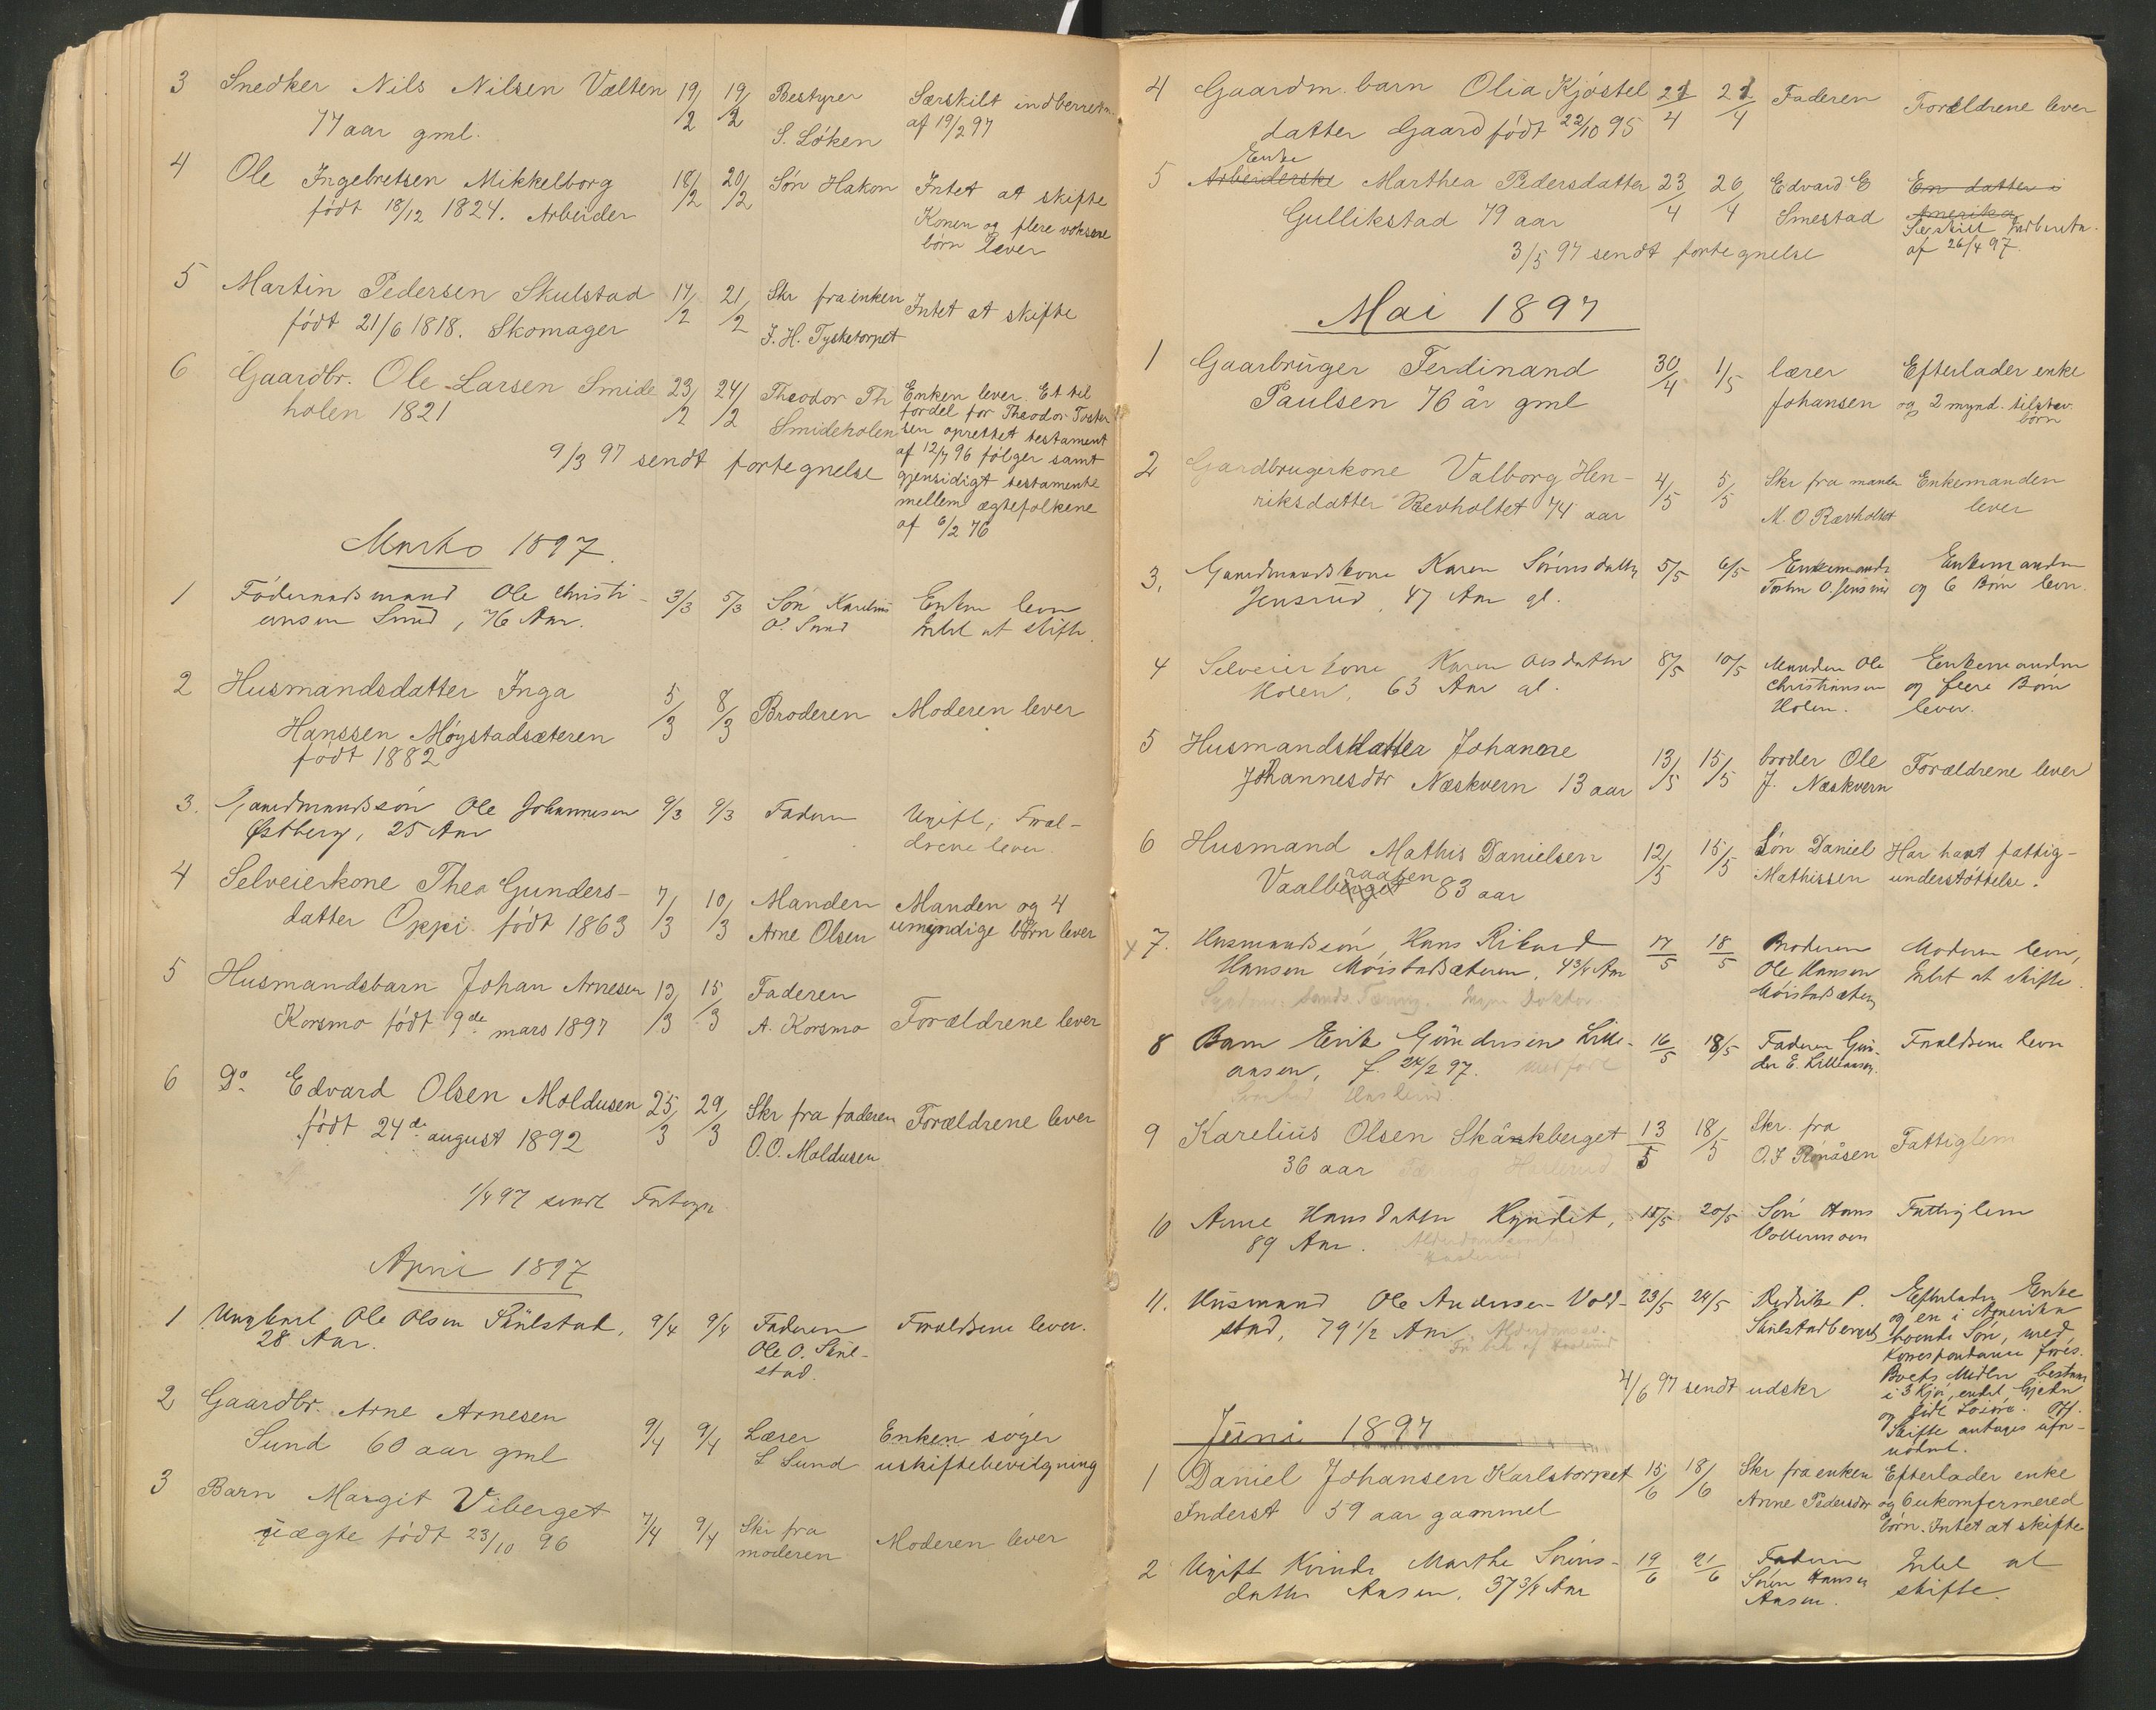 3 Snedker Nils Nilsen Vælten 19/2 19/2 Bestyrer Særskilt indberetn.
77 aar gml. S. Löken af 19/2 97
4 Ole Ingebretsen Mikkelborg 18/2 20/2 Sön Hakon Intet at skifte
födt 18/12 1824. Arbeider Konen og flere voksne
börn lever
5 Martin Pedersen Skulstad 17/2 21/2 Skr fra enken Intet at skifte
födt 21/6 1818. Skomager J. H. Tysketorpet
6 Gaardbr. Ole Larsen Smide 23/2 24/2 Theodor Th Enken lever. Et til
holen 1821 Smideholen fordel for Theodor Torsten
sen oprettet testament
9/3 97 sendt fortegnelse af 12/7 96 fölger samt
gjensidigt testamente
mellem ægtefolkene
af 6/2 76
Marts 1897.
1 Födernaadsmand Ole Christi- 3/3 5/3 Sön Karelius Enken lever
ansen Sund, 76 Aar. O. Sund Intet at skifte.
2 Husmandsdatter Inga 5/3 8/3 Broderen Moderen lever
Hanssen Möystadsæteren
födt 1882
3. Gaardmandssön Ole Johannesen 9/3 9/3 Faderen Ugift, Foræl-
Østberg, 25 Aar drene lever.
4 Selveierkone Thea Gunders- 7/3 10/3 Manden Manden og 4
datter Oppi födt 1863 Arne Olsen umyndige börn lever
5 Husmandsbarn Johan Arnesen 13/3 15/3 Faderen
Korsmo födt 9de mars 1897 A. Korsmo Forældrene lever
6 Do Edvard Olsen Moldusen 25/3 29/3 Skr fra faderen Forældrene lever
födt 24de august 1892 O. O. Moldusen
1/4 97 sendt Fortegn
April 1897
1 Ungkarl Ole Olsen Skulstad, 9/4 9/4 Faderen Forældrene lever.
28 Aar. Ole O. Skul-
stad.
2 Gaardbr. Arne Arnesen 9/4 9/4 Lærer Enken söger
Sund 60 aar gml L Sund uskiftebevilgning
3 Barn Margit Viberget 7/4 9/4 Skr fra Moderen lever
uægte födt 23/10 96 moderen
4 Gaardm. barn Olia Kjöstel 21/4 21/4 Faderen Forældrene lever
datter Gaard födt 22/10 95
Enke
5 Arbeiderske Marthea Pedersdatter 23/4 26/4 Edvard E En datter i
Gullikstad 79 aar Smestad Amerika
Særskilt Indberetn.
3/5 97 sendt fortegnelse af 26/4 97.
Mai 1897
1 Gaarbruger Ferdinand 30/4 1/5 lærer Efterlader enke
Paulsen 76 år gml Johansen og 2 mynd. tilstev.
börn
2 Gardbrugerkone Valborg Hen- 4/5 5/5 Skr fra manden Enkemanden
riksdatter Revholtet 74 aar M. O Rævholtet lever
3. Gaardmandskone Karen Sörensdatter 5/5 6/5 Enkemand Enkemanden
Jensrud, 47 Aar gl. O. Jensrud og 6 Börn lever.
4 Selveierkone Karen Olsdatter 8/5 10/5 Manden Ole Enkemanden
Holen, 63 Aar gl. Christiansen og flere Börn
Holen. lever.
5 Husmandsdatter Johanne 13/5 15/5 broder Ole Forældrene lever
Johannesdtr Næskvern 13 aar J. Næskvern
6 Husmand Mathis Danielsen 12/5 15/5 Sön Daniel Har havt fattig-
raaben
Vaalberget 83 aar Mathissen understöttelse.
x 7. Husmandssön, Hans Rikard 17/5 18/5 Broderen Moderen lever,
Hansen Möistadsæteren, 43/4 Aar Ole Hansen Intet at skifte.
Möistadsæteren
8 Barn Erik Gundersen Lille- 16/5 18/5 Faderen Gun- Forældrene lever
aasen, f. 24/2 97. Medfödt der E. Lilleaasen.
9 Karelius Olsen Skånkberget 13/5 18/5 Skr. fra Fattiglem
36 aar Tæring Haslerud O. J Rönåsen
10 Anne Hansdatter Hyndit, 18/5 20/5 Sön Hans Fattiglem
89 Aar. Vollermoen
11. Husmand Ole Andersen Vold- 23/5 24/5 Efterlader Enke
stad, 79 1/2 Aar Skulstadberget og en i Amerika
boende Sön, med
Korrespondance
Boets Midler bestaar
4/6 97 sendt udskr i 3 Kjör, endel Gjeter
og lidt Lösöre. Off.
Skifte antages uforn-
ödent.
Juni 1897
1 Daniel Johansen Karlstorpet 15/6 18/6 Skr fra enken Efterlader enke
Inderst 59 aar gammel Anne Pedersdtr og 6 ukomfermered
börn. Intet at skifte
2 Ugift Kvinde Marthe Sörens- 19/6 21/6 Faderen Intet at
datter Aasen, 37 3/4 Aar Sören Hansen skifte.
Aasen.